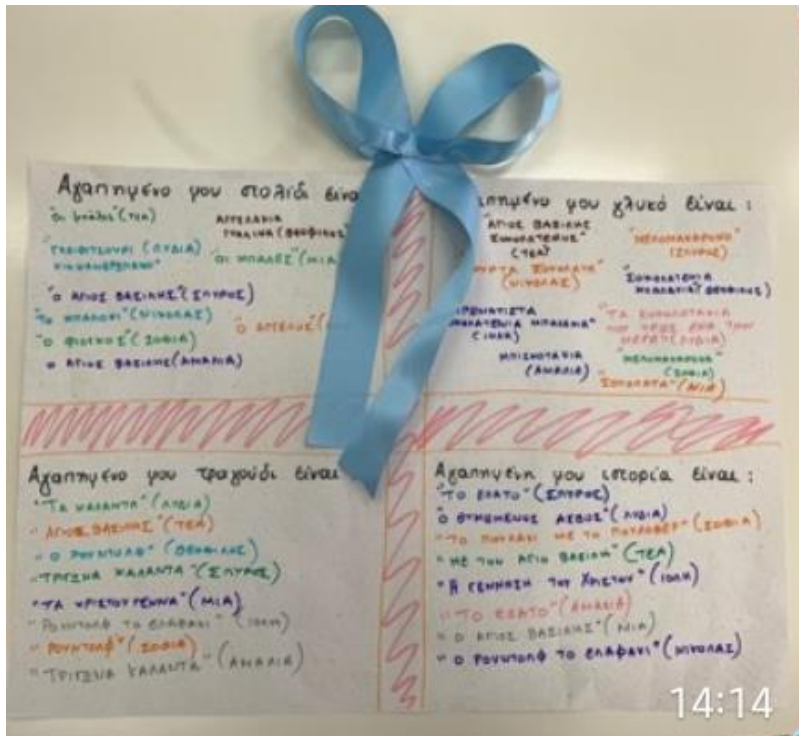 Αγαπημένο μου στολίδι είνα
"Οι μπάλες" (ΤΕΑ)
ΑΓΓΕΛΑΚΙΑ
ΓΥΑΛΙΝΑ (ΘΕΟΦΙΛΟΣ)
(ΛΥΔΙΑ)
"ΟΙ ΜΠΑΛΕΣ" (ΜΙΑ)
"Ο ΑΓΙΟΣ ΒΑΣΙΛΗΣ" (ΣΠΥΡΟΣ)
"ΤΟ ΜΠΑΛΟΝΙ" (ΝΙΚΟΛΑΣ)
"Ο ΑΓΓΕΛΟΣ" (
"Ο ΦΙΟΓΚΟΣ" (ΣΟΦΙΑ)
"Ο ΑΓΙΟΣ ΒΑΣΙΛΗΣ (ΑΜΑΛΙΑ)
πημένο μου γλυκό είναι :
"ΑΓΙΟΣ ΒΑΣΙΛΗΣ
ΣΟΚΟΛΑΤΕΝΙΟΣ"
(ΤΕΑ)
"ΜΕΛΟΜΑΚΑΡΟΝΟ"
(ΣΠΥΡΟΣ)
ΣΟΚΟΛΑΤΑ"
(ΝΙΚΟΛΑΣ)
"ΣΟΚΟΛΑΤΕΝΙΑ
ΜΠΑΛΑΚΙΑ" (ΘΕΟΦΙΛΟΣ)
ΜΠΑΛΑΚΙΑ"
(ΙΟΛΗ)
"ΤΑ ΣΟΚΟΛΑΤΑΚΙΑ
ΠΟΥ ΤΡΩΣ ΕΝΑ ΤΗΝ
ΜΕΡΑ" (ΛΥΔΙΑ)
ΜΠΙΣΚΟΤΑΚΙΑ
(ΑΜΑΛΙΑ)
"ΜΕΛΟΜΑΚΑΡΟΝΑ"
(ΣΟΦΙΑ)
"ΣΟΚΟΛΑΤΑ" (ΜΙΑ)
Αγαπημένο μου τραγούδι είναι
"ΤΑ ΚΑΛΑΝΤΑ" (ΛΥΔΙΑ)
"ΑΓΙΟΣ ΒΑΣΙΛΗΣ" (ΤΕΑ)
"Ο ΡΟΥΝΤΟΛΦ" (ΘΕΟΦΙΛΟΣ)
"ΤΡΙΓΩΝΑ ΚΑΛΑΝΤΑ" (ΣΠΥΡΟΣ)
"ΤΑ ΧΡΙΣΤΟΥΓΕΝΝΑ" (ΜΙΑ)
"ΡΟΥΝΤΟΛΦ ΤΟ ΕΛΑΦΑΚΙ" (ΙΟΛΗ)
"ΡΟΥΝΤΟΛΦ" (ΣΟΦΙΑ)
"ΤΡΙΓΩΝΑ ΚΑΛΑΝΤΑ" (ΑΜΑΛΙΑ)
Αγαπημένη μου ιστορία είναι :
"ΤΟ ΕΛΑΤΟ" (ΣΠΥΡΟΣ)
"Ο ΘΥΜΩΜΕΝΟΣ ΑΣΒΟΣ" (ΛΥΔΙΑ)
"ΤΟ ΠΟΥΛΑΚΙ ΜΕ ΤΟ ΠΟΥΛΟΒΕΡ" (ΣΟΦΙΑ)
"ΜΕ ΤΟΝ ΑΓΙΟ ΒΑΣΙΛΗ" (ΤΕΑ)
"Η ΓΕΝΝΗΣΗ ΤΟΥ ΧΡΙΣΤΟΥ" (ΙΟΛΗ)
"ΤΟ ΕΛΑΤΟ" (ΑΜΑΛΙΑ)
"Ο ΑΓΙΟΣ ΒΑΣΙΛΗΣ" (ΜΙΑ)
"Ο ΡΟΥΝΤΟΛΦ ΤΟ ΕΛΑΦΑΚΙ" (ΝΙΚΟΛΑΣ)
14:14